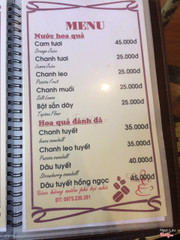 MENU
Nước hoa quả
Cam tươi 45.000đ
Orange Juice
Chanh tươi 25.000đ
Lemon Juice
Chanh leo 25.000đ
Passion Fruit
Chanh muối 25.000đ
Salt Lemon
Bột sắn dây 25.000đ
Tapioca Flour
Hoa quả đánh đá
Chanh tuyết 35.000đ
Lemon snowball
Chanh leo tuyết 35.000đ
Passion snowball
Dâu tuyết 40.000đ
Strawberry snowball
Dâu tuyết hồng ngọc 45.000đ
Giao hàng miễn phí tại nhà
ĐT: 0975.235.281